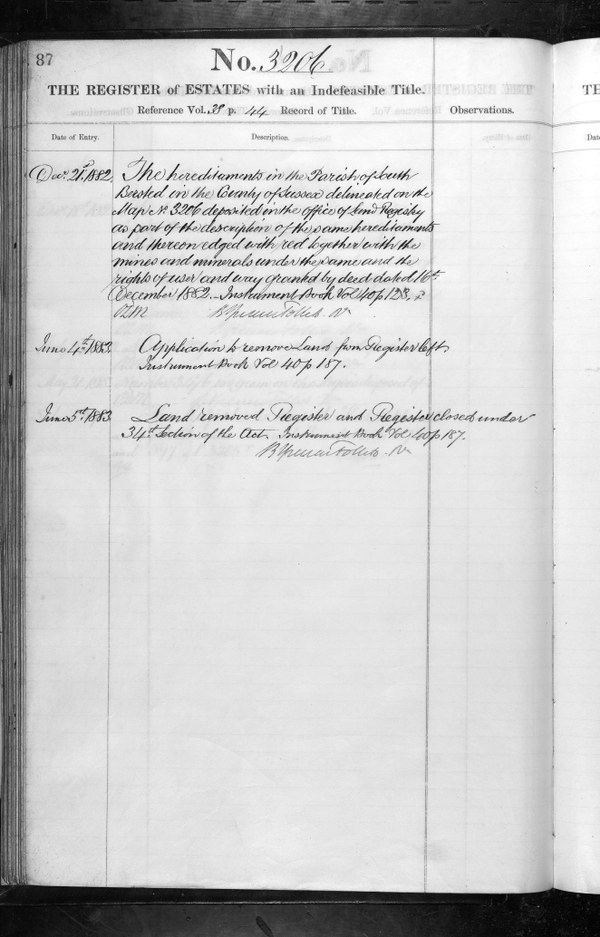 87
No. 3206
THE REGISTER of ESTATES with an Indefeasible Title.
Reference Vol. 38 p. 44 Record of Title.
Observations.
Date of Entry.
Description.
Decr. 21st 1882.
The hereditaments in the Parish of South
Bersted in the County of Sussex delineated on the
Map No. 3206 deposited in the office of Land Registry
as part of the description of the same hereditaments
and thereon edged with red together with the
mines and minerals under the same and the
rights of user and way granted by deed dated 16th
December 1882. Instrument Book Vol 40 p 128.
June 4th 1883.
Application to remove Land from Register left
Instrument Book Vol 40 p 187.
June 5th 1883.
Land removed Register and Register closed under
34th Section of the Act. Instrument Book Vol 40 p 187.
TH
Dat